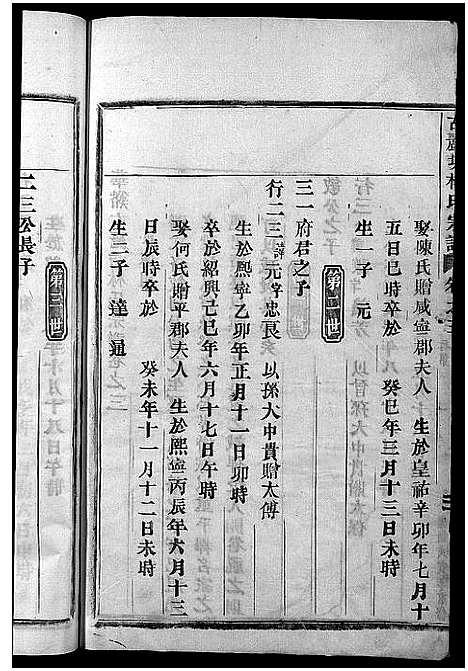 娶陳氏贈咸寧郡夫人　生於皇祐辛卯年七月十
五日巳時卒於　癸巳年三月十三日未時
生一子　元
第二世
三一府君之子
行二三諱元字忠良　以孫大中貴贈太傅
生於熙寧乙卯年正月十一日卯時
卒於紹興己巳年六月十七日午時
娶何氏贈平郡夫人　生於熙寧丙辰年六月十三
日辰時卒於　癸未年十一月十二日未時
生二子　達　通
第三世
二三公長子